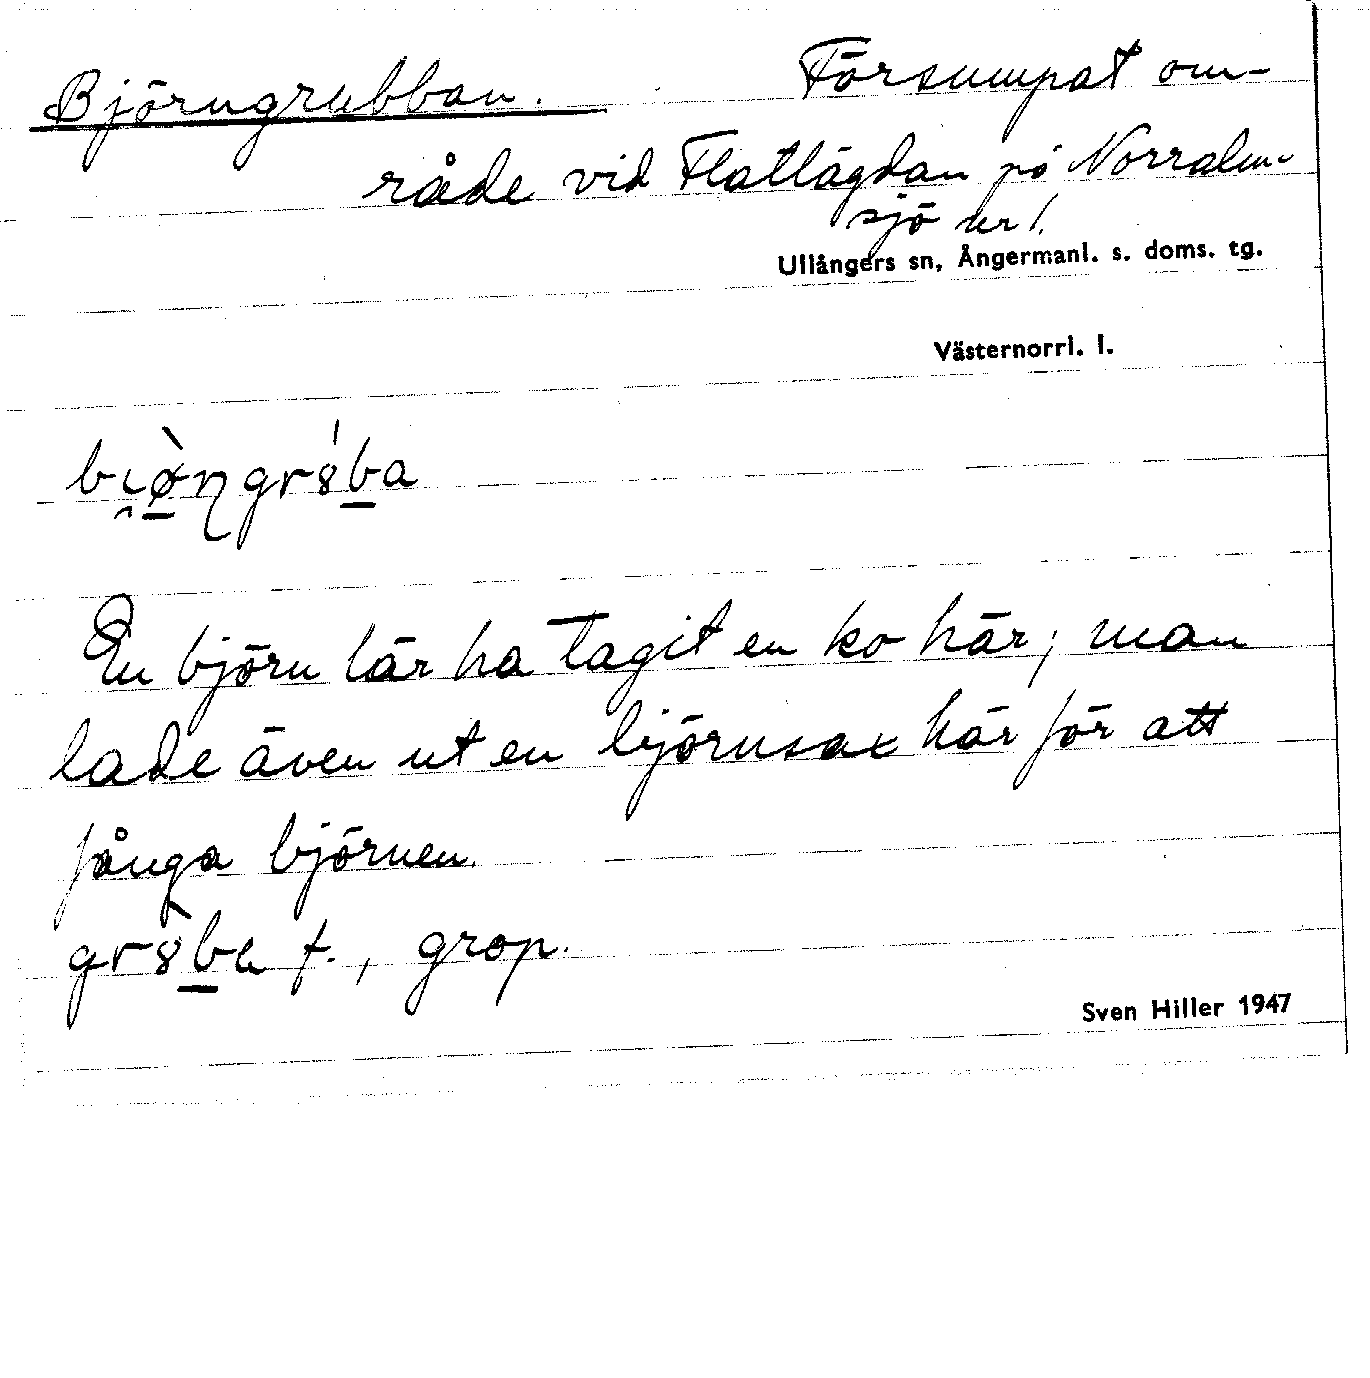 Björngrubban. Försumpat om-
råde vid Flatlägdan på Norralm-
sjö kr/.
Ullångers sn, Ångermanl. s. doms. tg.
Västernorrl. l.
bi̯ø̀ŋgr8́ba
En björn lär ha tagit en ko här; man
lade även ut en björnsax här för att
fånga björnen.
gr8̀ba f., grop.
Sven Hiller 1947